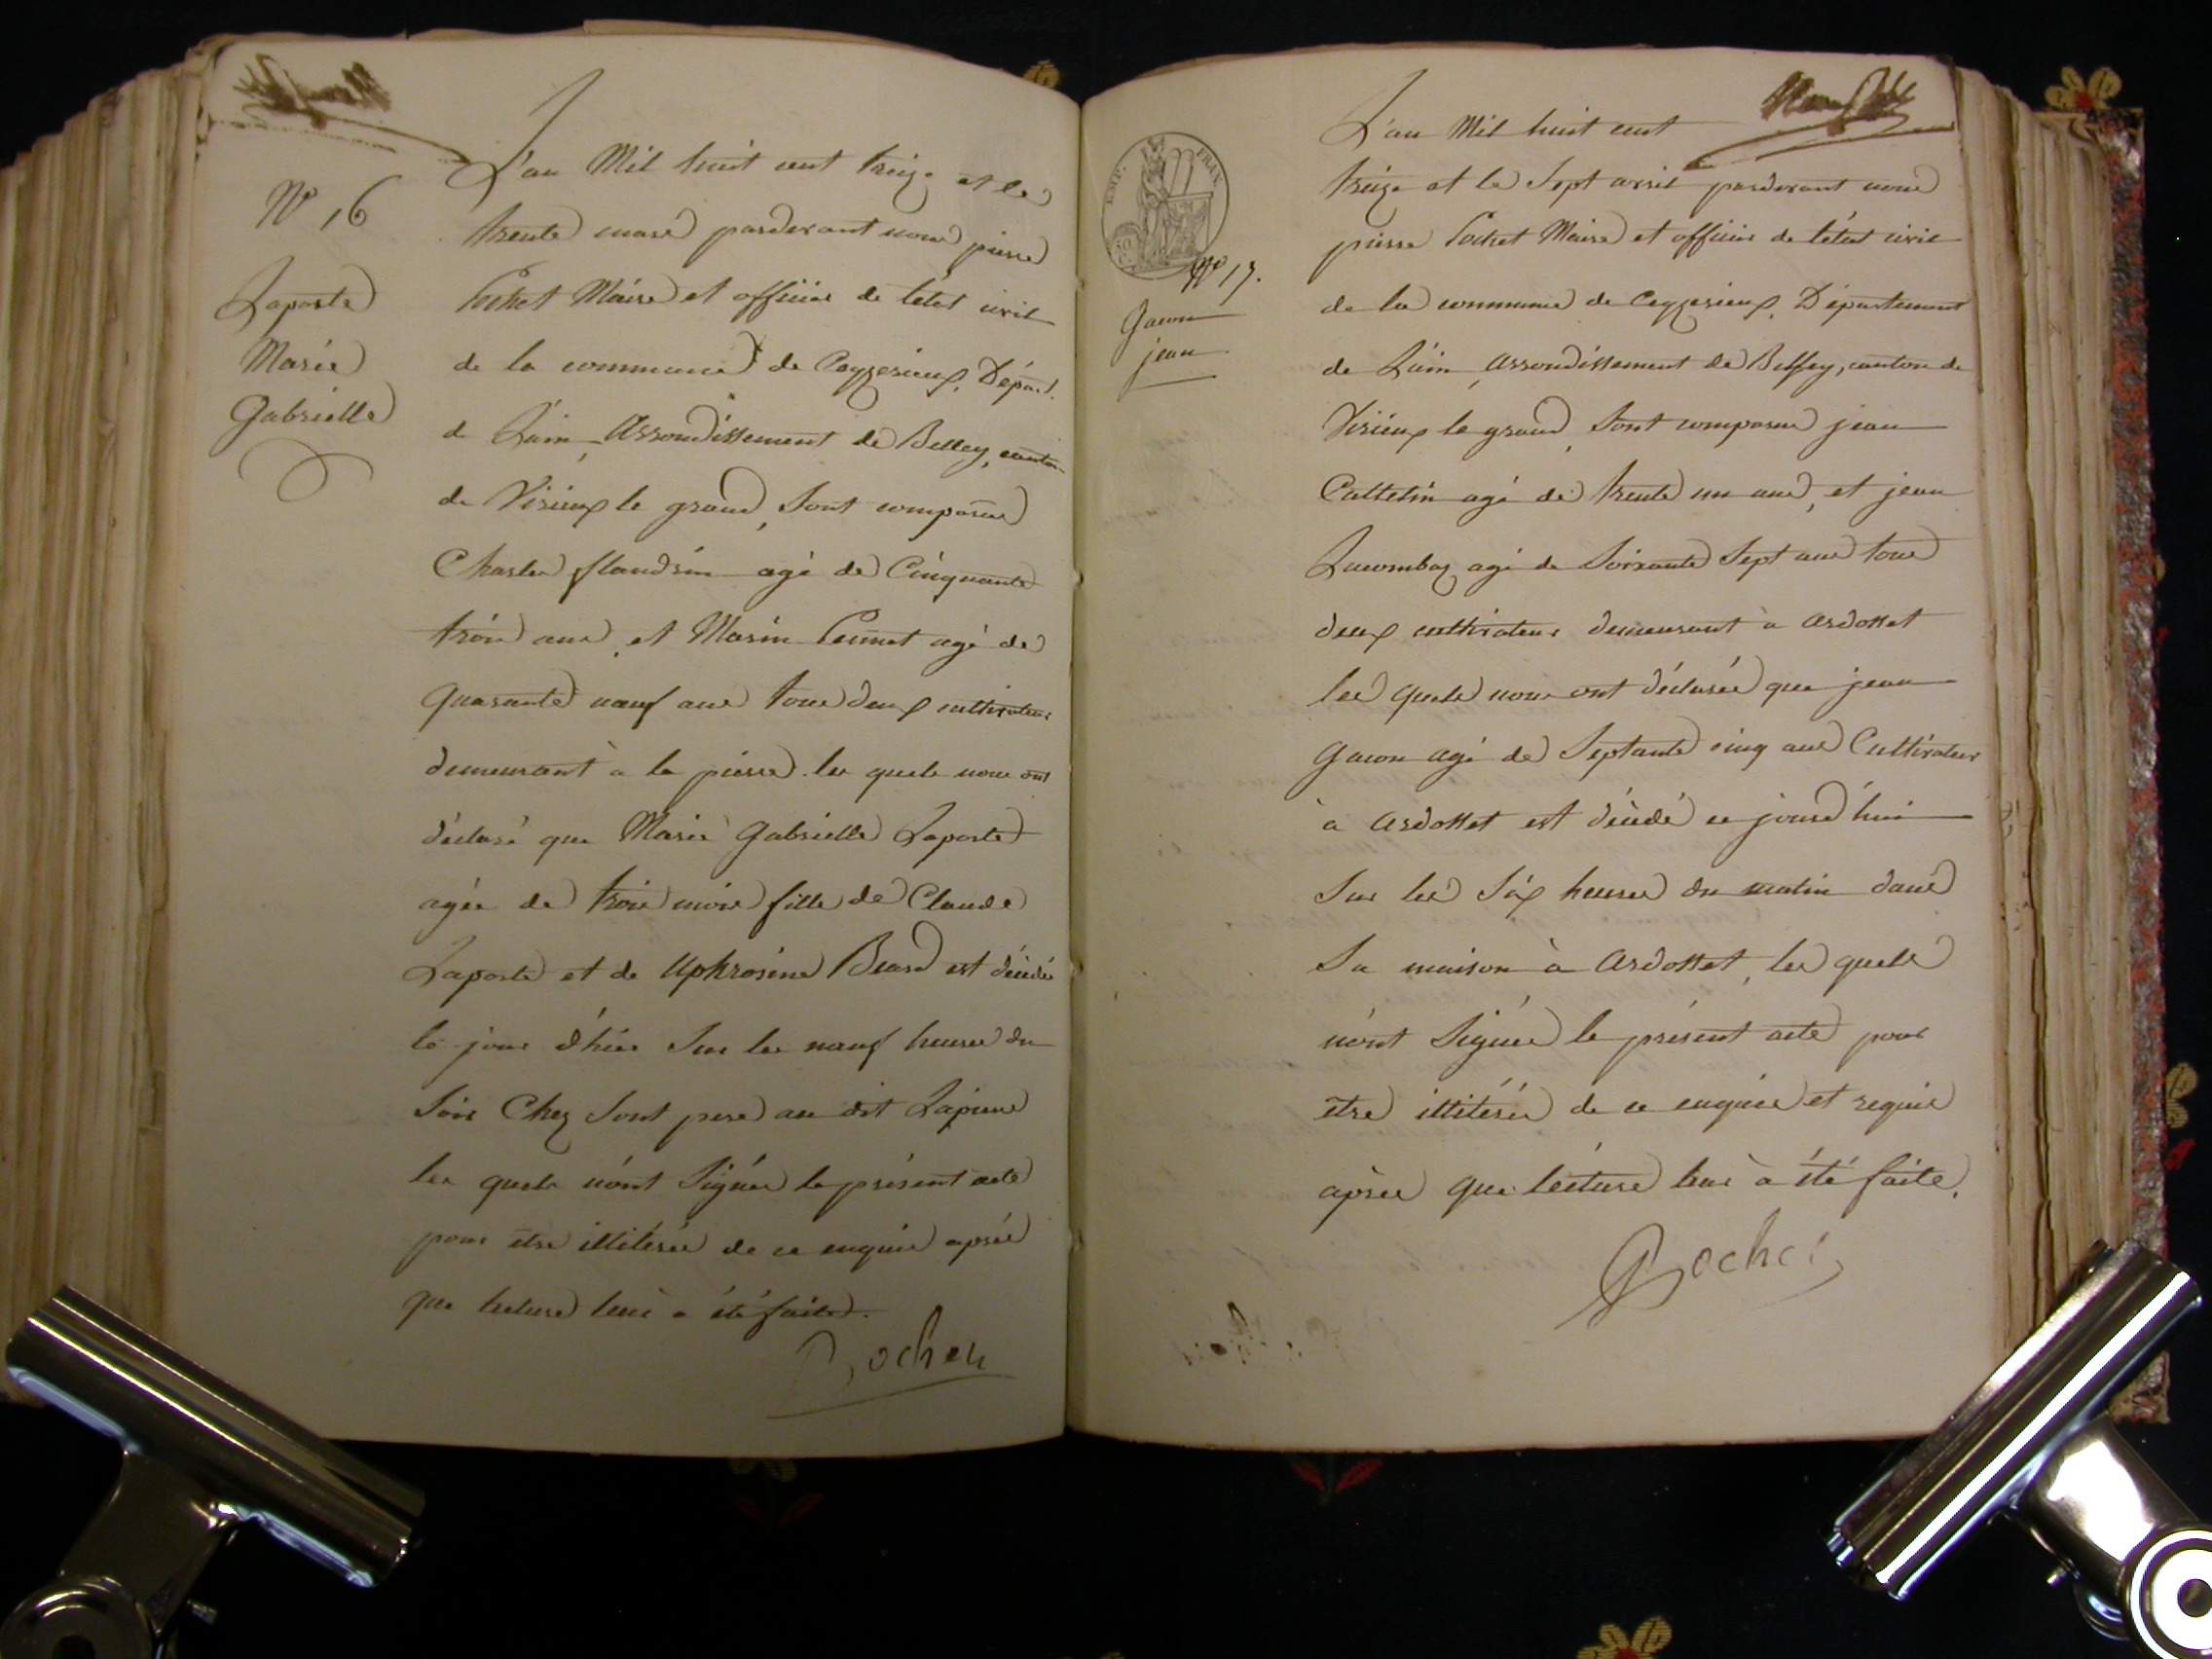 N° 16
Laporte
Marie
Gabrielle
L'an Mil huit cent treize et le
trente mars pardevant nous pierre
Pochet Maire et officier de l'état civil
de la commune de Ceyzerieux, Départ.
de L'ain, Arrondissement de Belley, canton
de Virieux le grand, Sont comparus
Charles flandrin agé de Cinquante
trois ans, et Marin agé de
quarante neuf ans tous deux cultivateurs
demeurant à la pierre. les quels nous ont
déclaré que Marie Gabrielle Laporte
agée de trois mois fille de Claude
Laporte et de Uphrosine Beard est décédée
le jour d'hier Sur les neuf heures du
Soir Chez Sont pere au dit Lapierre
les quels n'ont Signés le présent acte
pour etre illiterés de ce enquis après
que lecture leur a été faite.
Pochet
EMP. FRAN.
50
N° 17.
Gacon
jean
L'an Mil huit cent
treize et le Sept avril pardevant nous
pierre Pochet Maire et officier de l'état civil
de la commune de Ceyzerieux, Département
de L'ain, Arrondissement de Belley, canton de
Virieux le grand, Sont comparus jean
Cattelin agé de trente un ans, et jean
Lacombaz agé de Soixante Sept ans tous
deux cultivateurs demeurant à ardosset
les quels nous ont déclarés que jean
gacon agé de Septante cinq ans Cultivateur
à ardosset est décédé ce jourd'hui
Sur les Six heures du matin dans
Sa maison à ardosset, les quels
n'ont Signés le présent acte pour
etre illiterés de ce enquis et requis
après que lecture leur à été faite.
Pochet